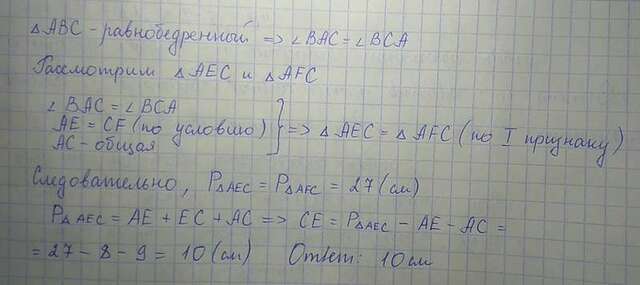 △ABC - равнобедренный => ∠BAC = ∠BCA
Рассмотрим △AEC и △AFC
∠BAC = ∠BCA
AE = CF (по условию)
AC - общая
} => △AEC = △AFC (по I признаку)
Следовательно, P△AEC = P△AFC = 27 (см)
P△AEC = AE + EC + AC => CE = P△AEC - AE - AC =
= 27 - 8 - 9 = 10 (см) Ответ: 10 см